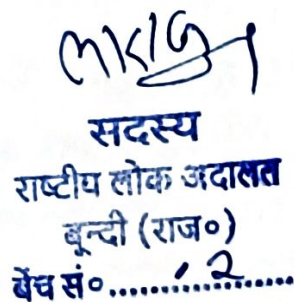 सदस्य
राष्टीय लोक अदालत
बुन्दी (राज०)
बेंच सं० ...... 2 ......